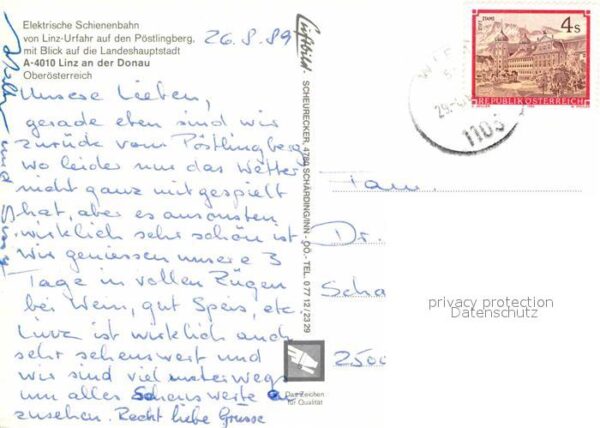 Elektrische Schienenbahn
von Linz-Urfahr auf den Pöstlingberg,
mit Blick auf die Landeshauptstadt
A-4010 Linz an der Donau
Oberösterreich
26.8.89
Unsere Lieben,
gerade eben sind wir
zurück vom Pöstlingberg
wo leider nur das Wetter
nicht ganz mitgespielt
hat, aber es ansonsten
wirklich sehr schön ist
Wir geniessen unsere 3
Tage in vollen Zügen
bei Wein, gut Speis, etc.
Linz ist wirklich auch
sehr sehenswert und
wir sind viel unterwegs
um alles Sehenswerte an
zusehen. Recht liebe Grüsse
und
Luftbild
SCHEURECKER, 4780 SCHÄRDING/INN - OÖ. - TEL. 07712/2329
Das Zeichen
für Qualität
STIFT STAMS
4 S
REPUBLIK ÖSTERREICH
1103
Fam.
Dr.
Scha
2500
privacy protection
Datenschutz